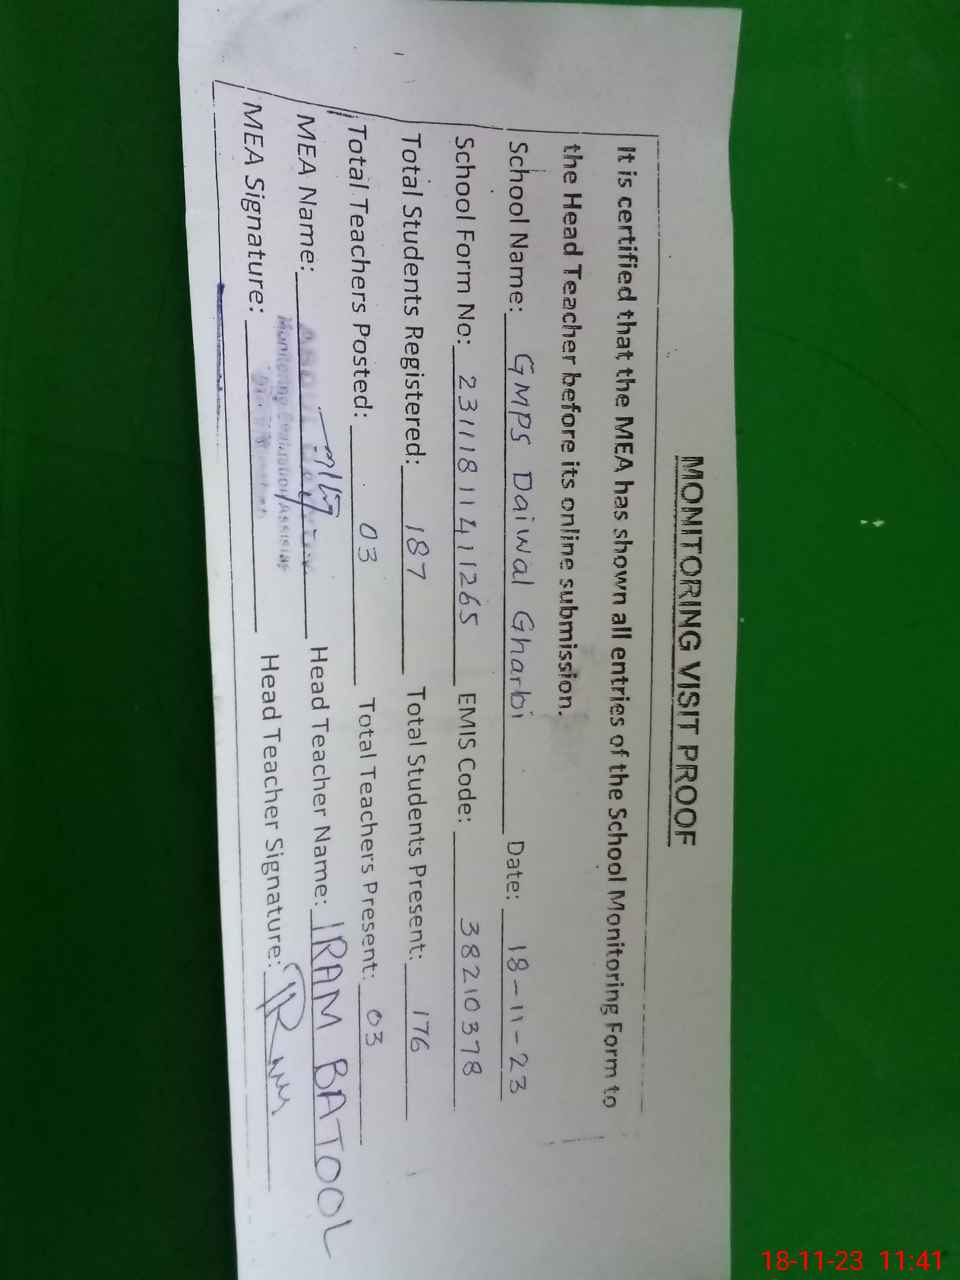 MONITORING VISIT PROOF
It is certified that the MEA has shown all entries of the School Monitoring Form to
the Head Teacher before its online submission.
School Name: GMPS Daiwal Gharbi Date: 18-11-23
School Form No: 23111811411265 EMIS Code: 38210378
Total Students Registered: 187 Total Students Present: 176
Total Teachers Posted: 03 Total Teachers Present: 03
MEA Name: Head Teacher Name: IRAM BATOOL
Monitoring Evaluation Assistant
MEA Signature: Head Teacher Signature:
18-11-23 11:41